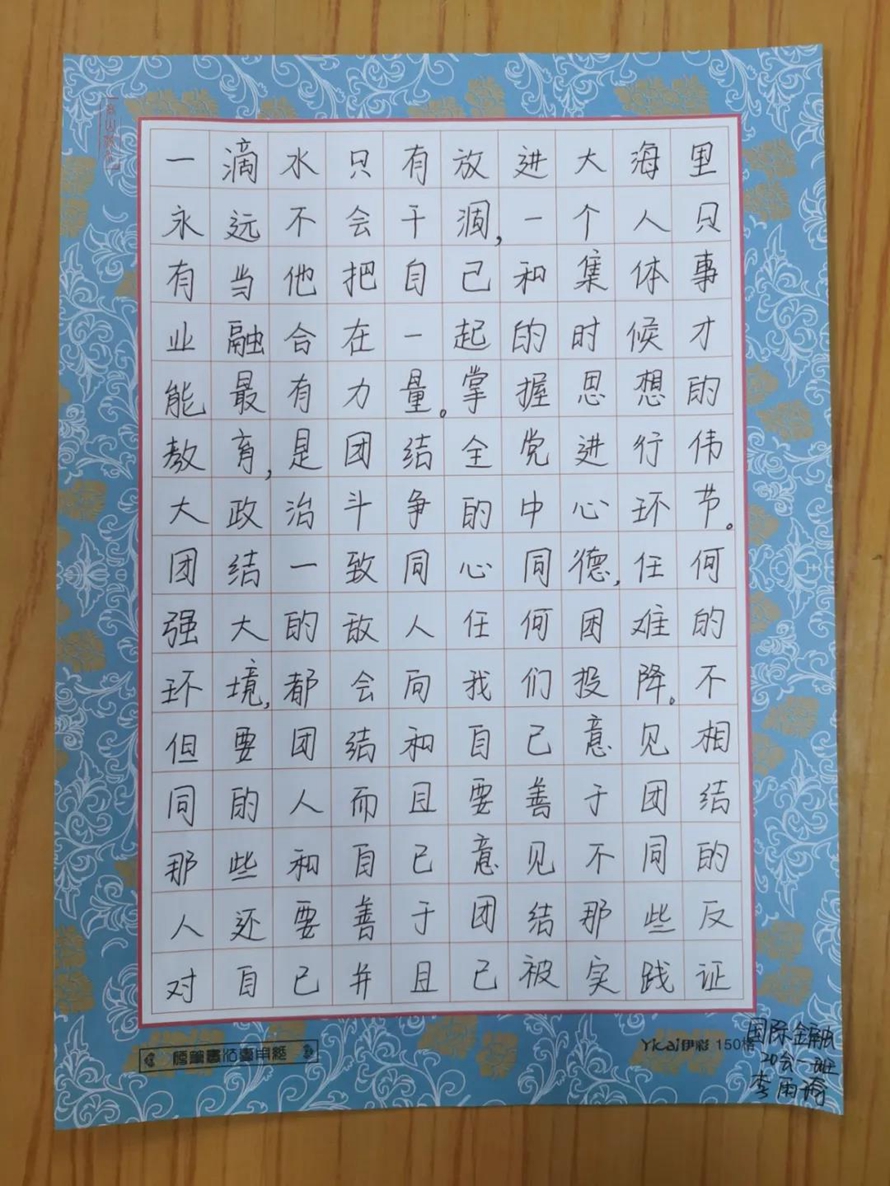 一滴水只有放进大海里
永远不会干涸,一个人只
有当他把自己和集体事
业融合在一起的时候才
能最有力量。掌握思想的
教育,是团结全党进行伟
大政治斗争的中心环节。
团结一致同心同德,任何
强大的敌人任何困难的
环境,都会向我们投降。不
但要团结和自己意见相
同的人而且要善于团结
那些和自己意见不同的
人还要善于团结那些反
对自己并且已被实践证
硬笔书法专用纸
Yicai伊彩 150格
国际金融
20会一班
李雨